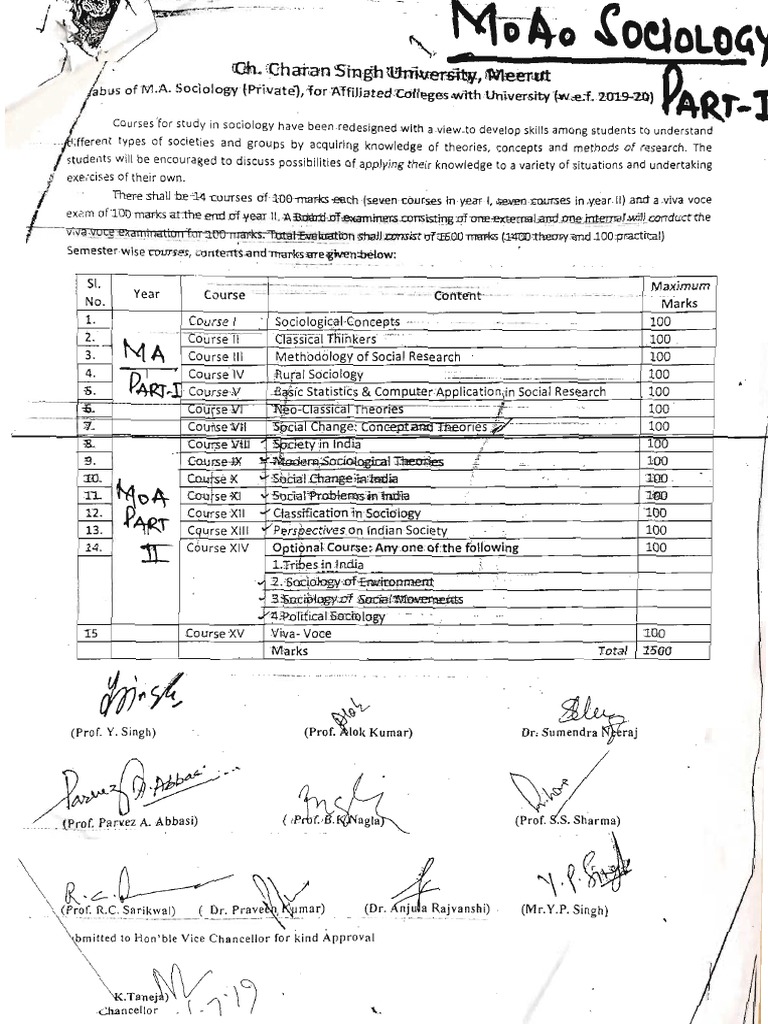 M.A. SOCIOLOGY
PART-I
Ch. Charan Singh University, Meerut
abus of M.A. Sociology (Private), for Affiliated Colleges with University (w.e.f. 2019-20)
Courses for study in sociology have been redesigned with a view to develop skills among students to understand
different types of societies and groups by acquiring knowledge of theories, concepts and methods of research. The
students will be encouraged to discuss possibilities of applying their knowledge to a variety of situations and undertaking
exercises of their own.
There shall be 14 courses of 100 marks each (seven courses in year I, seven courses in year II) and a viva voce
exam of 100 marks at the end of year II. A Board of examiners consisting of one external and one internal will conduct the
viva voce examination for 100 marks. Total Evaluation shall consist of 1500 marks (1400 theory and 100 practical)
Semester wise courses, contents and marks are given below:
Sl. No. Year Course Content Maximum Marks
1. Course I Sociological Concepts 100
2. Course II Classical Thinkers 100
3. MA Course III Methodology of Social Research 100
4. Course IV Rural Sociology 100
5. PART-I Course V Basic Statistics & Computer Application in Social Research 100
6. Course VI Neo-Classical Theories 100
7. Course VII Social Change: Concept and Theories 100
8. Course VIII Society in India 100
9. Course IX Modern Sociological Theories 100
10. Course X Social Change in India 100
11. M.A Course XI Social Problems in India 100
12. PART Course XII Classification in Sociology 100
13. Course XIII Perspectives on Indian Society 100
14. II Course XIV Optional Course: Any one of the following 100
1.Tribes in India
2. Sociology of Environment
3.Sociology of Social Movements
4.Political Sociology
15 Course XV Viva- Voce 100
Marks Total 1500
(Prof. Y. Singh) (Prof. Alok Kumar) Dr. Sumendra Neeraj
Parvez A. Abbasi
(Prof. Parvez A. Abbasi) (Prof. B.K Nagla) (Prof. S.S. Sharma)
Y.P. Singh
(Prof. R.C. Sarikwal) ( Dr. Praveen Kumar) (Dr. Anjula Rajvanshi) (Mr.Y.P. Singh)
bmitted to Hon'ble Vice Chancellor for kind Approval
K.Taneja)
Chancellor